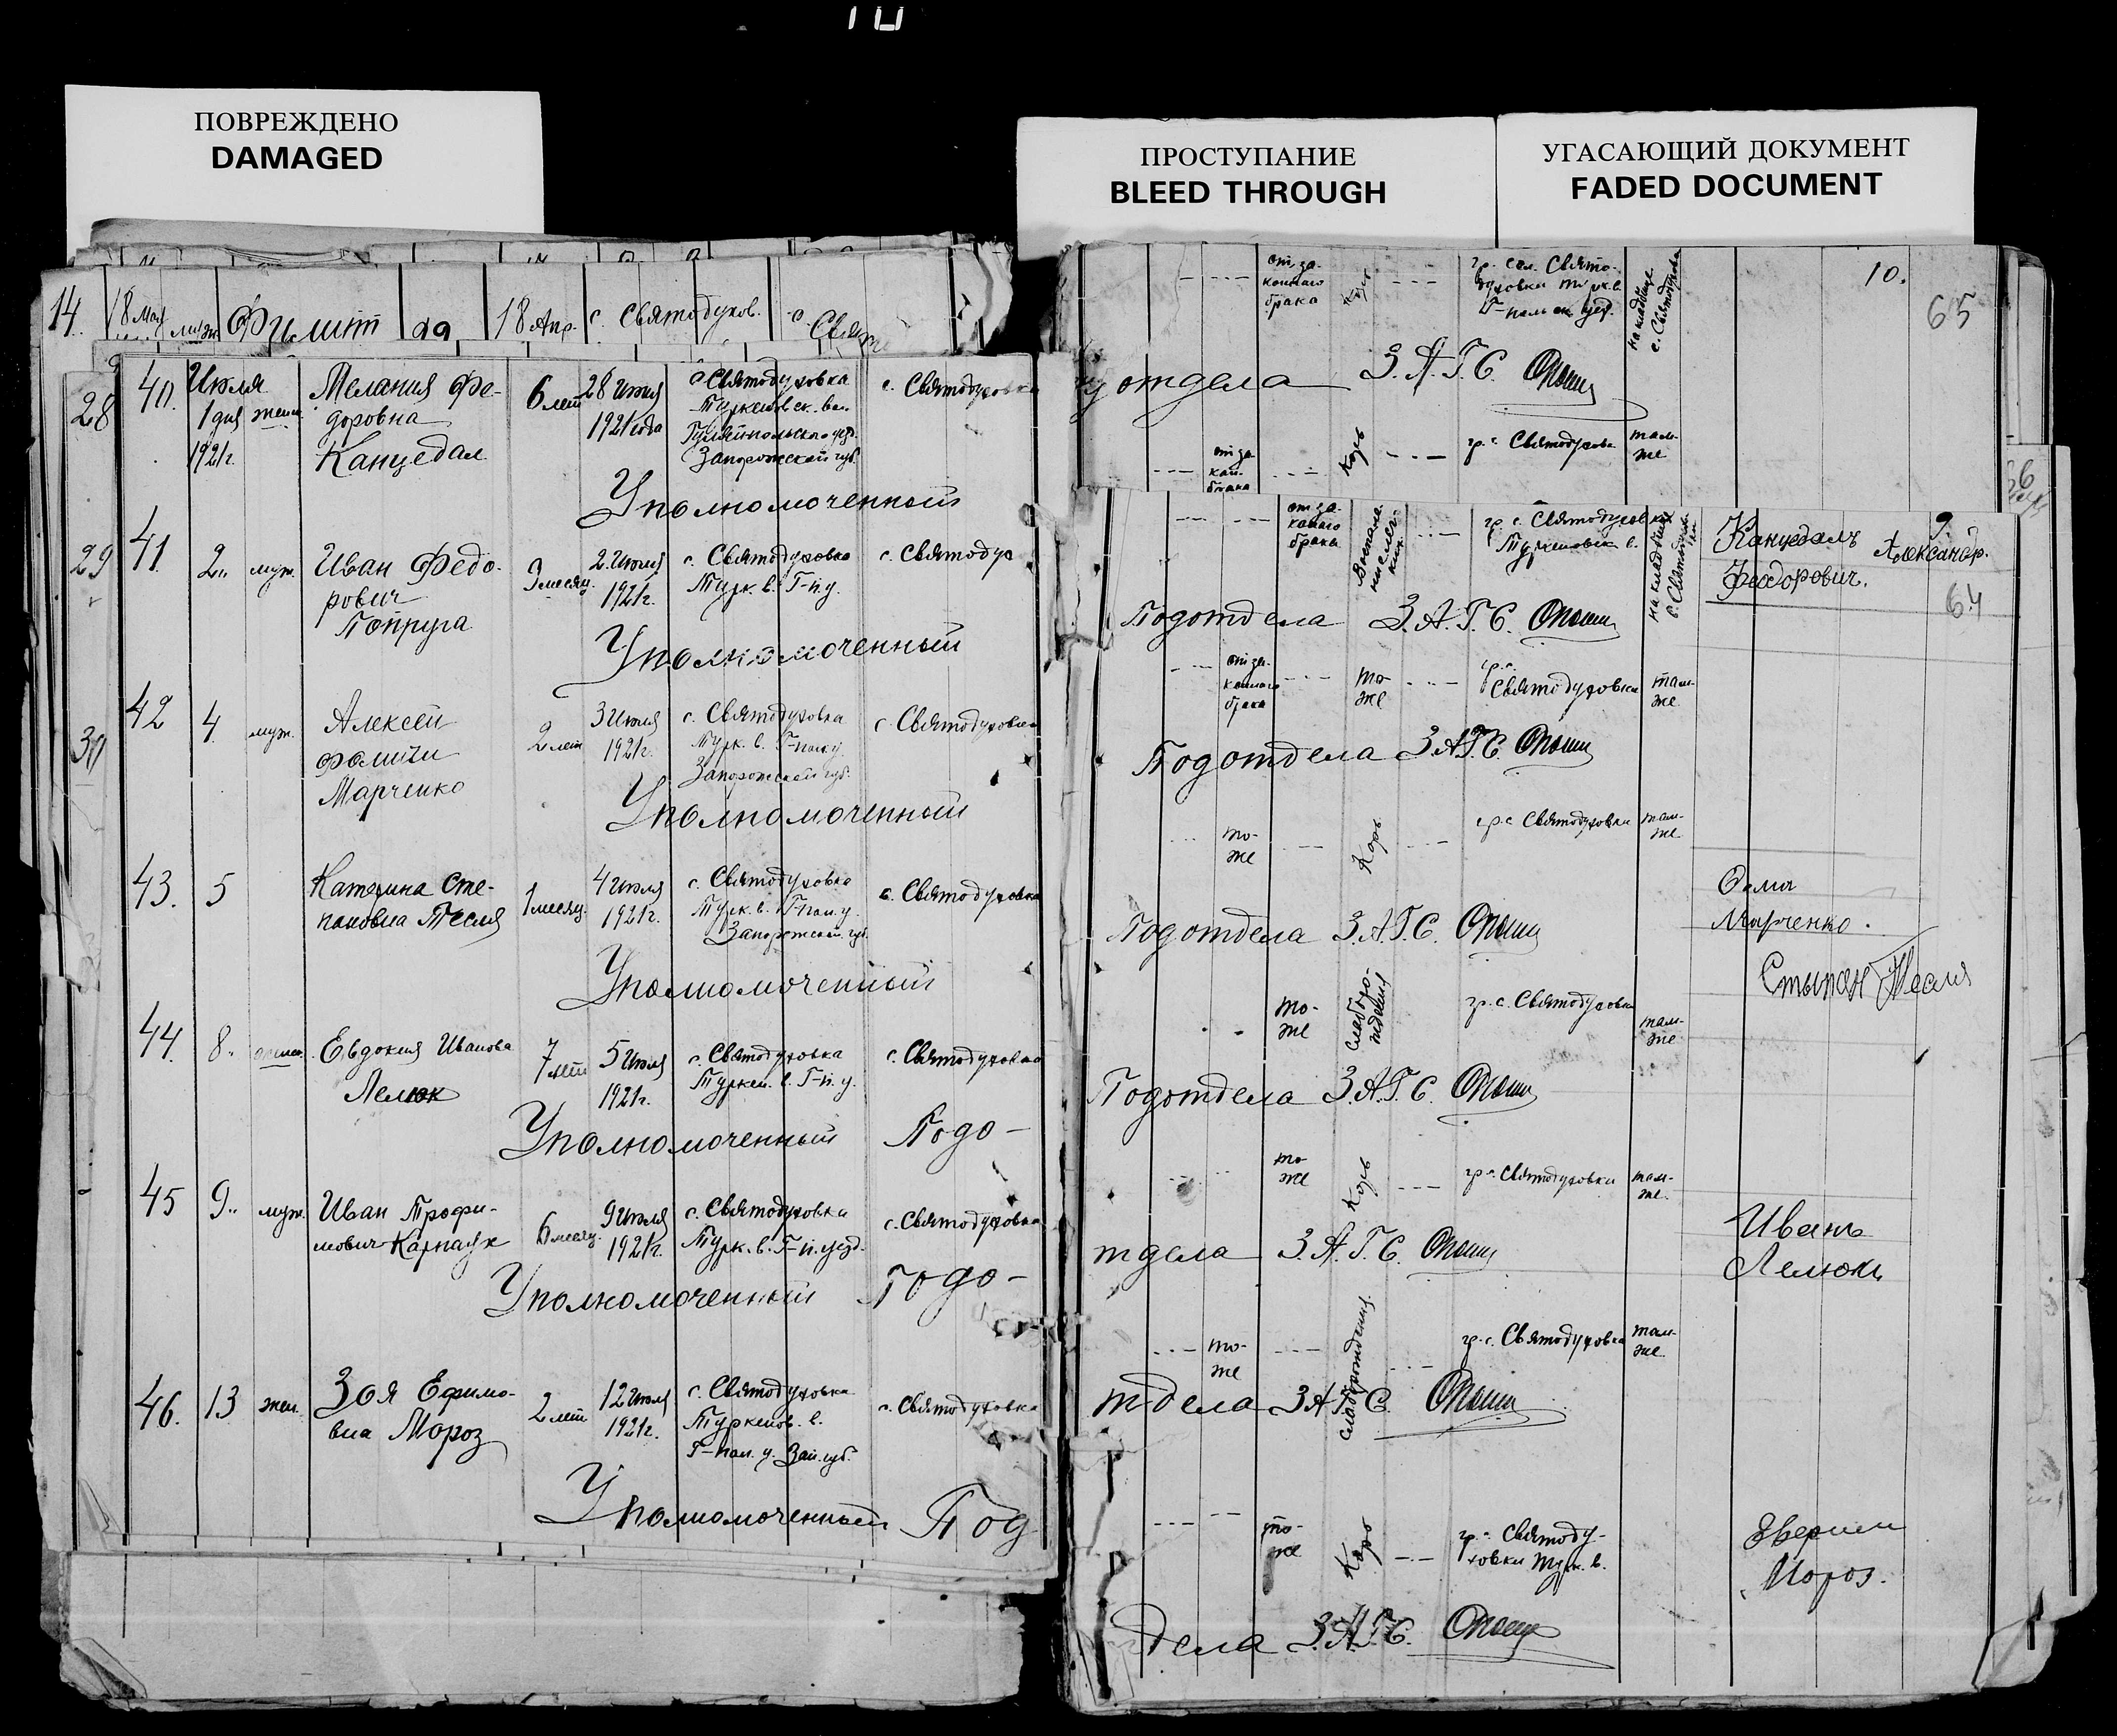 ПОВРЕЖДЕНО
DAMAGED
ПРОСТУПАНИЕ
BLEED THROUGH
УГАСАЮЩИЙ ДОКУМЕНТ
FADED DOCUMENT
14. 18 мая Филипп 18 Апр. с. Святодухов. с. Свят
28
40. Июля 1 дня 1921г. женск.
Мелания Фе-
доровна
Канцедал
6 лет
28 Июня
1921 года
с Святодуховка
Туркеновск. вол.
Гуляйпольского уезд.
Запорожской губ.
с. Святодуховка
Уполномоченный
29
41. 2" муж.
Иван Федо-
рович
Попруга
3 месяц.
2 Июля
1921г.
с. Святодуховка
Турк. в. Г-п.у.
с. Святодух
Уполномоченный
30
42 4 муж.
Алексей
Фомич
Марченко
2 лет
3 Июля
1921г.
с. Святодуховка
Турк. в. Г-пол у.
Запорожской губ.
с. Святодуховка
Уполномоченный
43. 5
Катерина Сте-
пановна Тесля
1 месяц.
4 июля
1921г.
с. Святодуховка
Турк. в. Г-пол. у.
Запорожской губ.
с. Святодуховка
Уполномоченный
44. 8"
Евдокия Иванова
Лелюк
7 лет
5 июля
1921г.
с. Святодуховка
Туркен. в. Г-п. у.
с. Святодуховка
Уполномоченный Подо-
45 9" муж.
Иван Трофи-
мович Карнаух
6 месяц.
9 июля
1921г.
с. Святодуховка
Турк. в. Г-п. уезд.
с. Святодуховка
Уполномоченный Подо-
46. 13 жен.
Зоя Ефимо-
вна Мороз
2 лет
12 июля
1921г.
с. Святодуховка
Туркенов. в.
Г-пол. у. Зап. губ.
с. Святодуховка
Уполномоченный Под
от за-
коннаго
брака
Корь
гр. сел. Свято-
духовки Турк. в.
на кладбище
с. Святодуховка
10.
65
отдела З.А.Г.С.
от за-
кон-
брака
Корь
гр. с. Святодухов
там-
же
от за-
коннаго
брака
гр. с. Святодуховки
Туркеновск в.
на кладбище
Канцедалъ Александр.
Феодорович.
9.
64
Подотдела З.А.Г.С.
от за-
коннаго
брака
то-
же
гр. с.
Святодуховки
там-
же
Подотдела З.А.Г.С.
то-
же
Корь
гр. с Святодуховки
там-
же
Фома
Марченко.
Подотдела З.А.Г.С.
то-
же
слаборо-
ждения
гр. с. Святодуховки
там-
же
Стыпан Тесля
Подотдела З.А.Г.С.
то-
же
Корь
гр. с. Святодуховки
там-
же
Иванъ
Лелюкъ
тдела З.А.Г.С.
то-
же
слаборождения
гр. с. Святодуховка
там-
же
тдела З.А.Г.С.
то-
же
Корь
гр. с. Святоду-
ховки Турк. в.
Мороз.
дела З.А.Г.С.